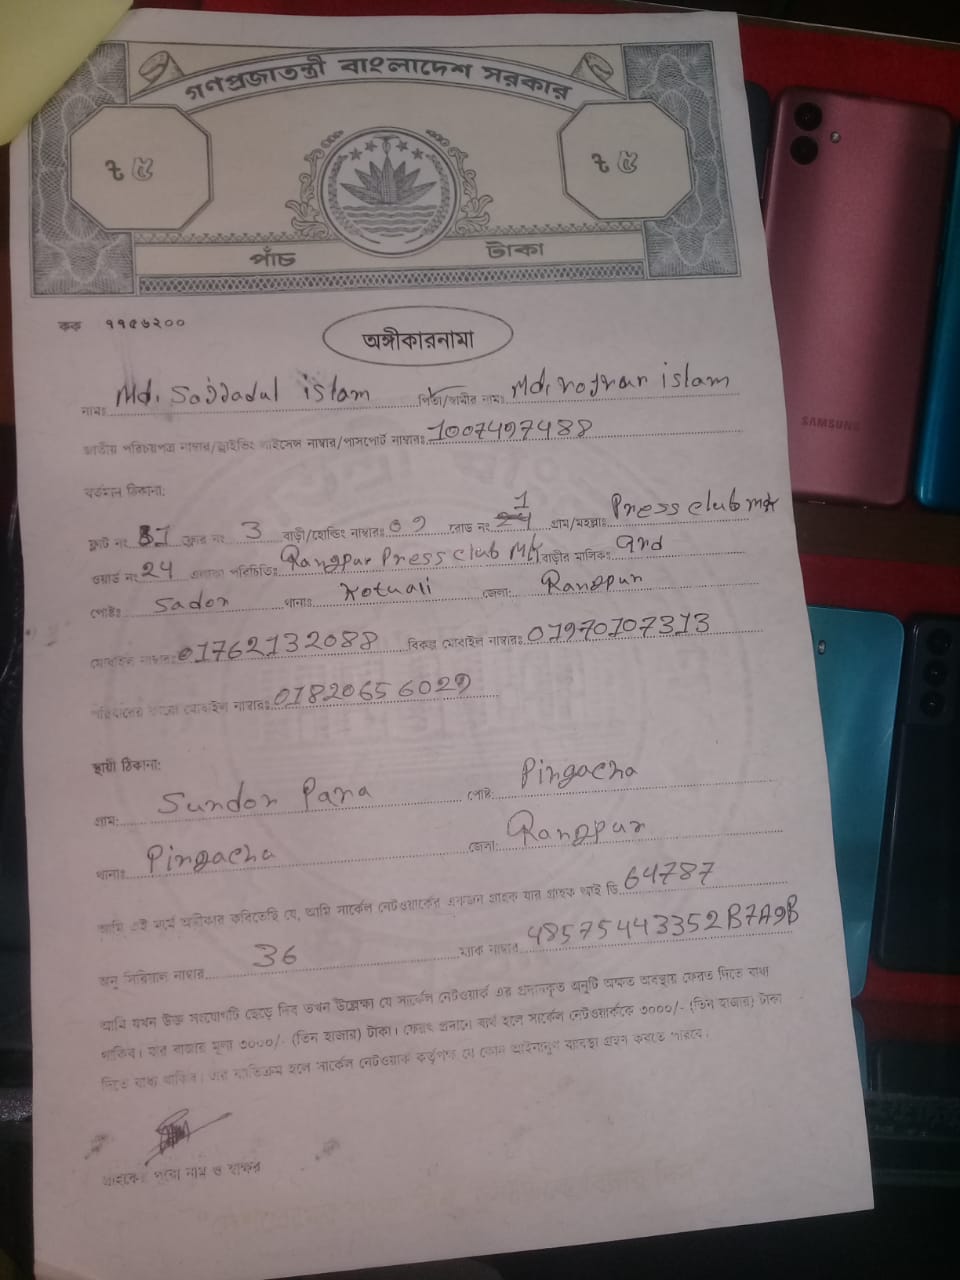 গণপ্রজাতন্ত্রী বাংলাদেশ সরকার
৳ ৫ ৳ ৫
পাঁচ টাকা
কক ৭৭৫৬২০০
অঙ্গীকারনামা
নামঃ Md. Sajjadul islam পিতা/স্বামীর নামঃ Md. islam
জাতীয় পরিচয়পত্র নাম্বার/ড্রাইভিং লাইসেন্স নাম্বার/পাসপোর্ট নাম্বারঃ 1007497488
বর্তমান ঠিকানা:
ফ্লাট নং B1 ফ্লোর নং 3 বাড়ী/হোল্ডিং নাম্বারঃ 09 রোড নং 1 গ্রাম/মহল্লাঃ Press club mkt
ওয়ার্ড নং 24 এলাকা পরিচিতিঃ Rangpur Press club Mkt বাড়ীর মালিকঃ grd
পোষ্টঃ Sador থানাঃ Kotuali জেলা: Rangpur
মোবাইল নাম্বারঃ 01762132088 বিকল্প মোবাইল নাম্বারঃ 01970107313
পরিবারের মোবাইল নাম্বারঃ 01820656029
স্থায়ী ঠিকানা:
গ্রাম: Sundor Para পোষ্ট: Pirgacha
থানাঃ Pirgacha জেলা: Rangpur
আমি এই মর্মে অঙ্গীকার করিতেছি যে, আমি সার্কেল নেটওয়ার্কের একজন গ্রাহক যার গ্রাহক আই ডি 64787
অনু সিরিয়াল নাম্বার 36 ম্যাক নাম্বার 48575443352B7A9B
আমি যখন উক্ত সংযোগটি ছেড়ে দিব তখন উল্লেক্ষ্য যে সার্কেল নেটওয়ার্ক এর প্রদানকৃত অনুটি অক্ষত অবস্থায় ফেরত দিতে বাধ্য
থাকিব। যার বাজার মূল্য ৩০০০/- (তিন হাজার) টাকা। ফেরৎ প্রদানে ব্যর্থ হলে সার্কেল নেটওয়ার্ককে ৩০০০/- (তিন হাজার) টাকা
দিতে বাধ্য থাকিব। এর ব্যতিক্রম হলে সার্কেল নেটওয়ার্ক কর্তৃপক্ষ যে কোন আইনানুগ ব্যবস্থা গ্রহন করতে পারবে।
গ্রাহকের পুরো নাম ও স্বাক্ষর
SAMSUNG